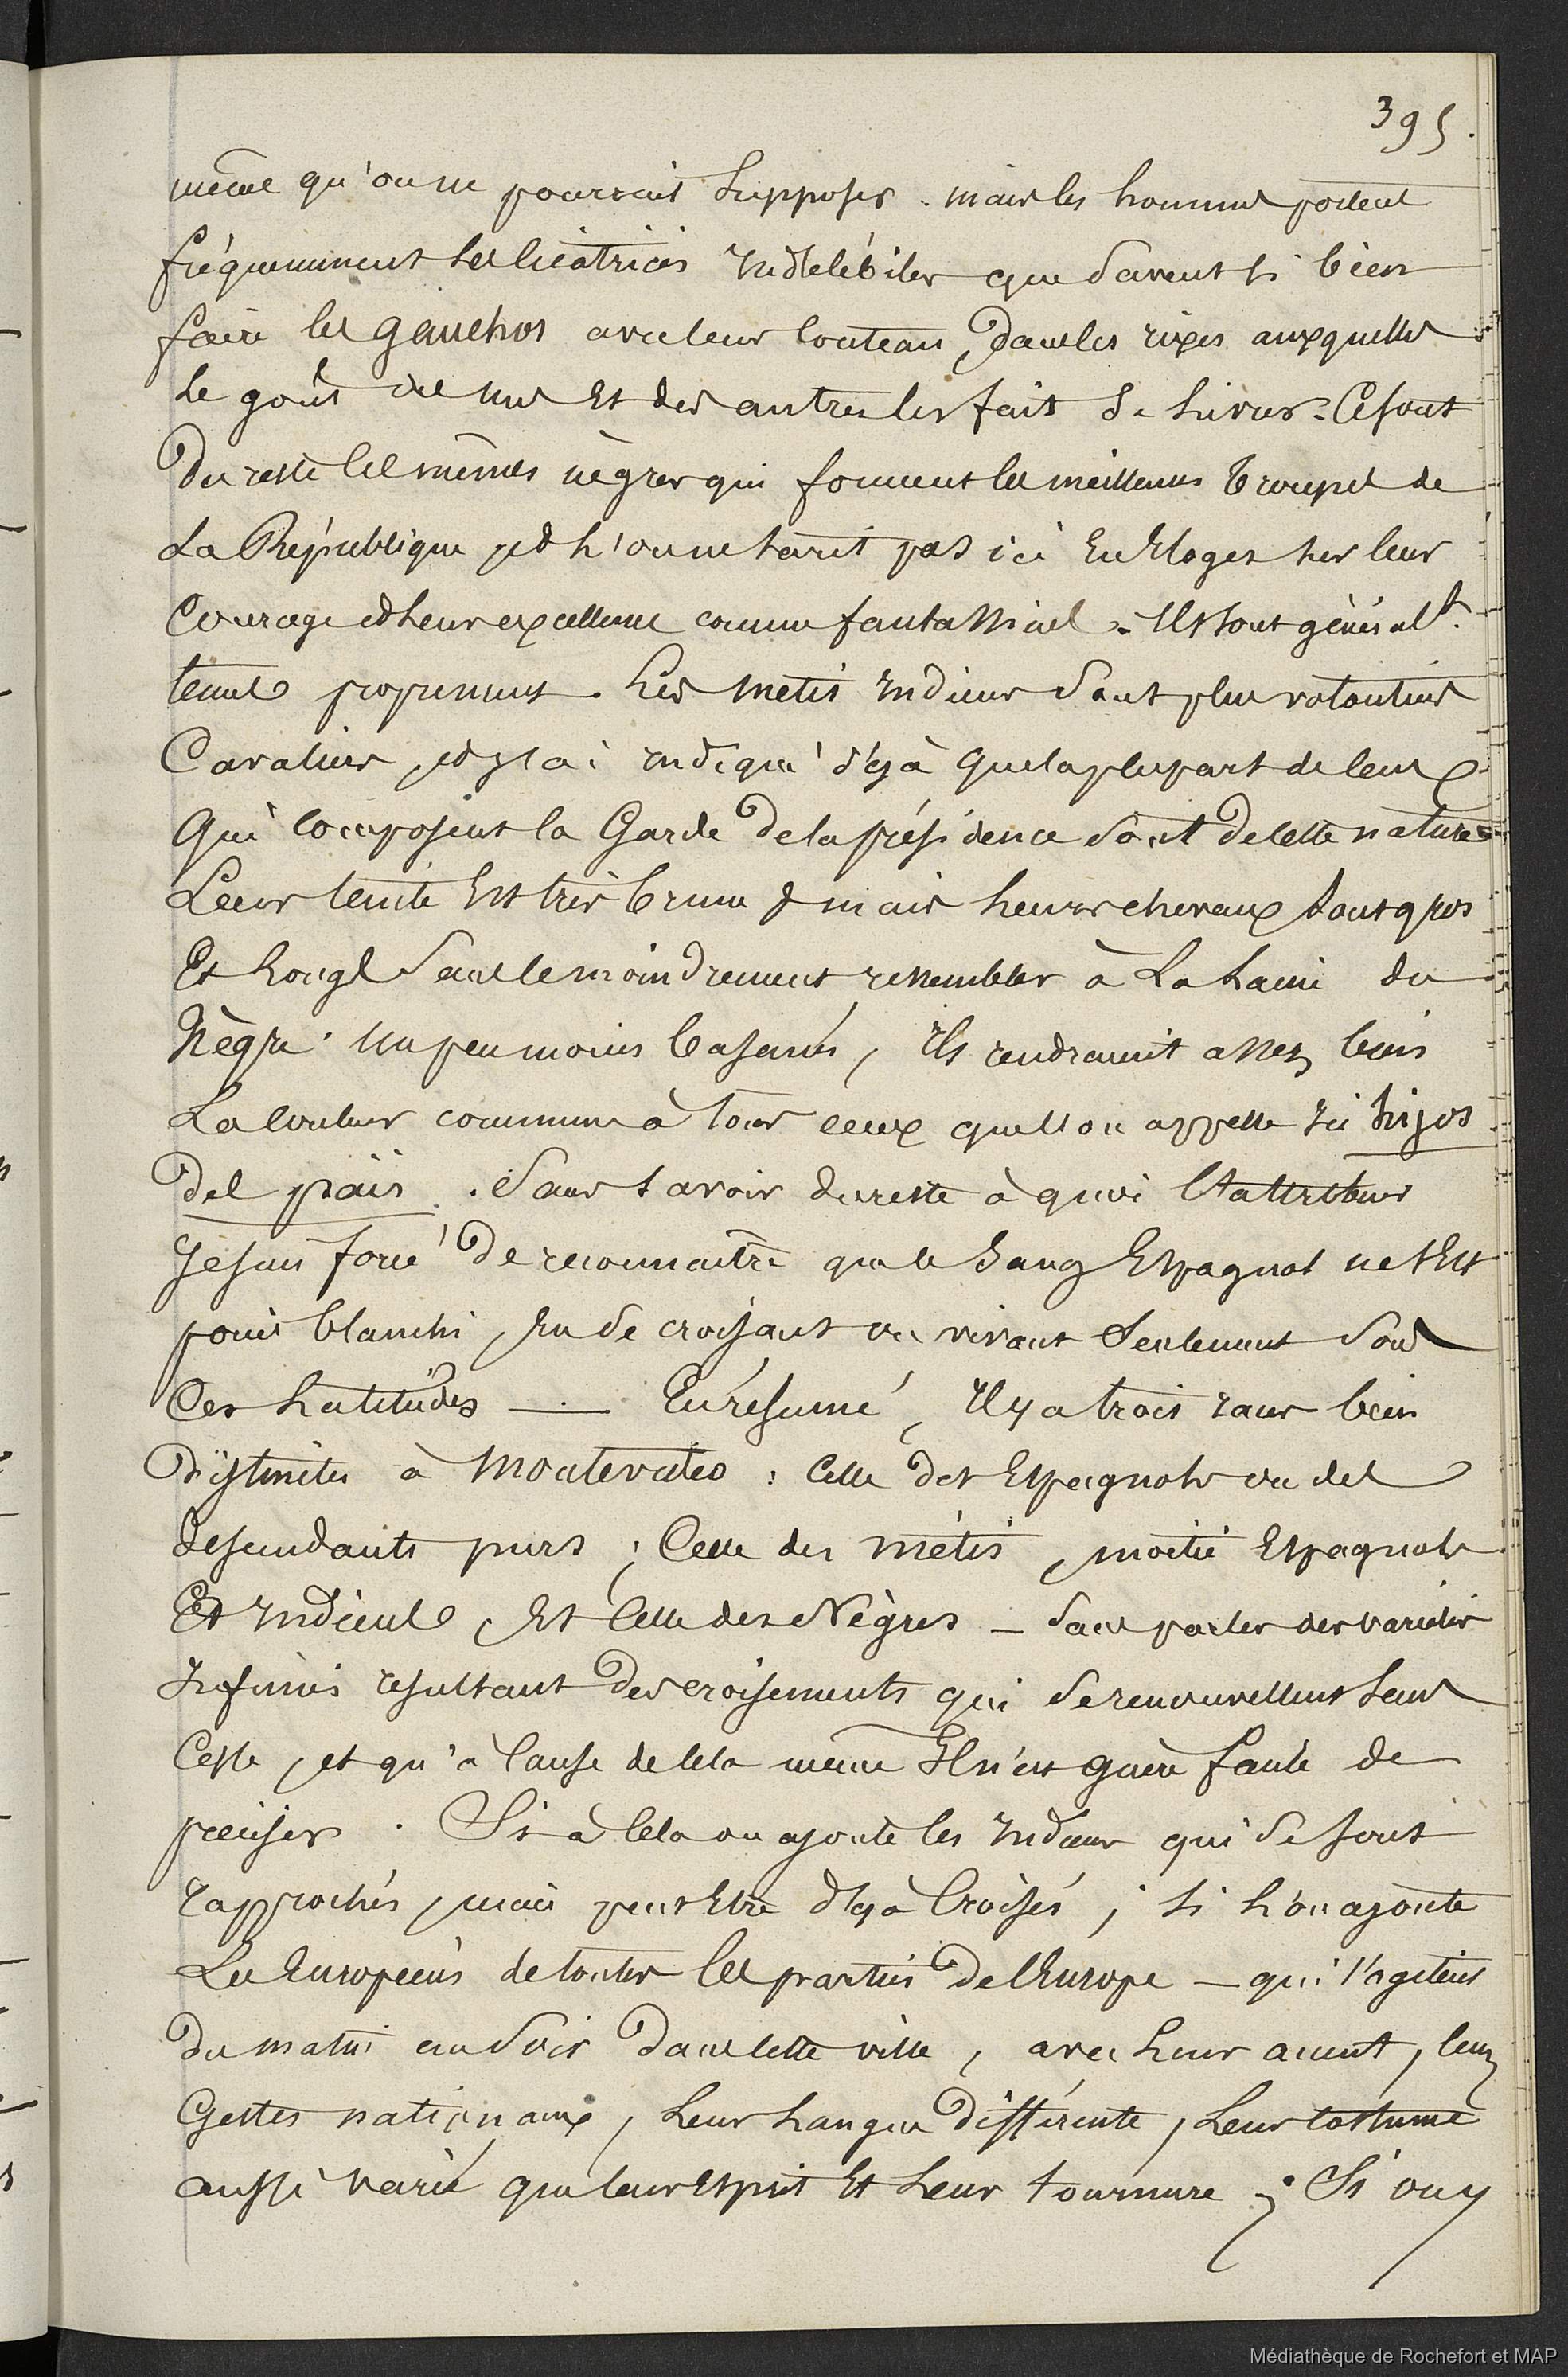 395.
même qu'on ne pourrait supposer. mais les hommes portent
fréquemment les cicatrices indélébiles que savent si bien
faire les gauchos avec leur couteau, dans les rixes auxquelles
le goût des uns et des autres les fait se livrer. Ce sont
du reste les mêmes nègres qui forment les meilleures troupes de
la République, et l'on ne tarit pas ici en éloges sur leur
courage et leur excellence comme fantassins. Ils sont général.t
tenus proprement. Les métis indiens sont plus volontiers
cavaliers, et j'ai indiqué déjà que la plupart de ceux
qui composent la Garde de la présidence sont de cette nature
Leur teinte est très brune & mais leurs cheveux sont gros
et longs sans le moindrement ressembler à la laine du
Nègre. un peu moins basanés, ils rendraient assez bien
la couleur commune à tous ceux que l'on appelle ici hijos
del païs. Sans savoir du reste à quoi l'attribuer
je suis forcé de reconnaître que le sang Espagnol ne s'est
point blanchi, en se croisant ou vivant seulement sous
ces latitudes — En résumé, il y a trois races bien
distinctes à Montevideo : celle des Espagnols ou des
descendants purs ; celle des métis, moitié Espagnols
et indiens, et celle des Nègres — sans parler des variétés
infinies résultant des croisements qui se renouvellent sans
cesse, et qu'à cause de cela même il n'est guère facile de
préciser. Si à cela on ajoute les indiens qui se sont
rapprochés, mais peut être déjà croisés ; si l'on ajoute
les Européens de toutes les parties de l'Europe — qui s'agitent
du matin au soir dans cette ville, avec leur accent, leurs
gestes nationaux, leur langue différente, leur costume
aussi varié que leur esprit et leur tournure ; Si on y
Médiathèque de Rochefort et MAP